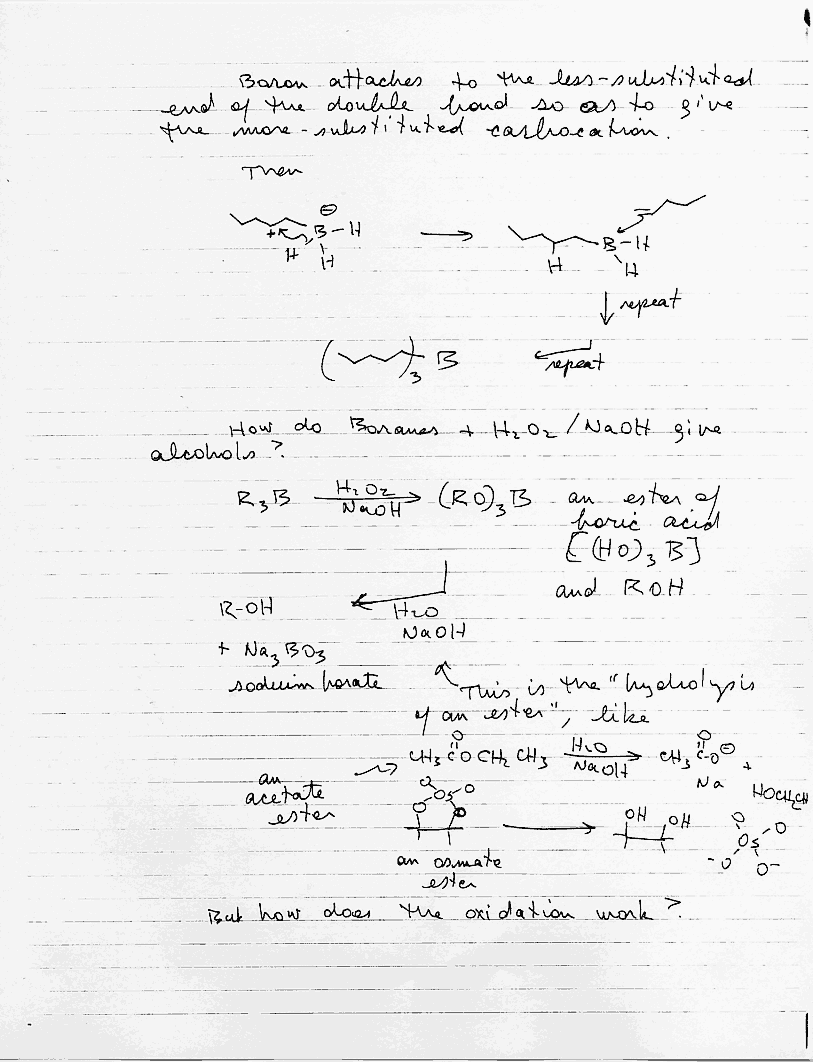 Boron attaches to the less-substituted
end of the double bond so as to give
the more-substituted carbocation.
Then
⊖
+ B-H
H H
B-H
H H
repeat
( )3 B
repeat
How do Boranes + H2O2/NaOH give
alcohols?
R3B H2O2 NaOH (RO)3B an ester of
boric acid
[(HO)3B]
and ROH
R-OH H2O
NaOH
+ Na3BO3
sodium borate
This is the "hydrolysis
of an ester", like
O O
CH3COCH2CH3 H2O NaOH CH3C-O⊖ +
Na HOCH2CH
an
acetate
ester
O Os O
O O
OH OH
O O
Os
-O O-
an osmate
ester
But how does the oxidation work?